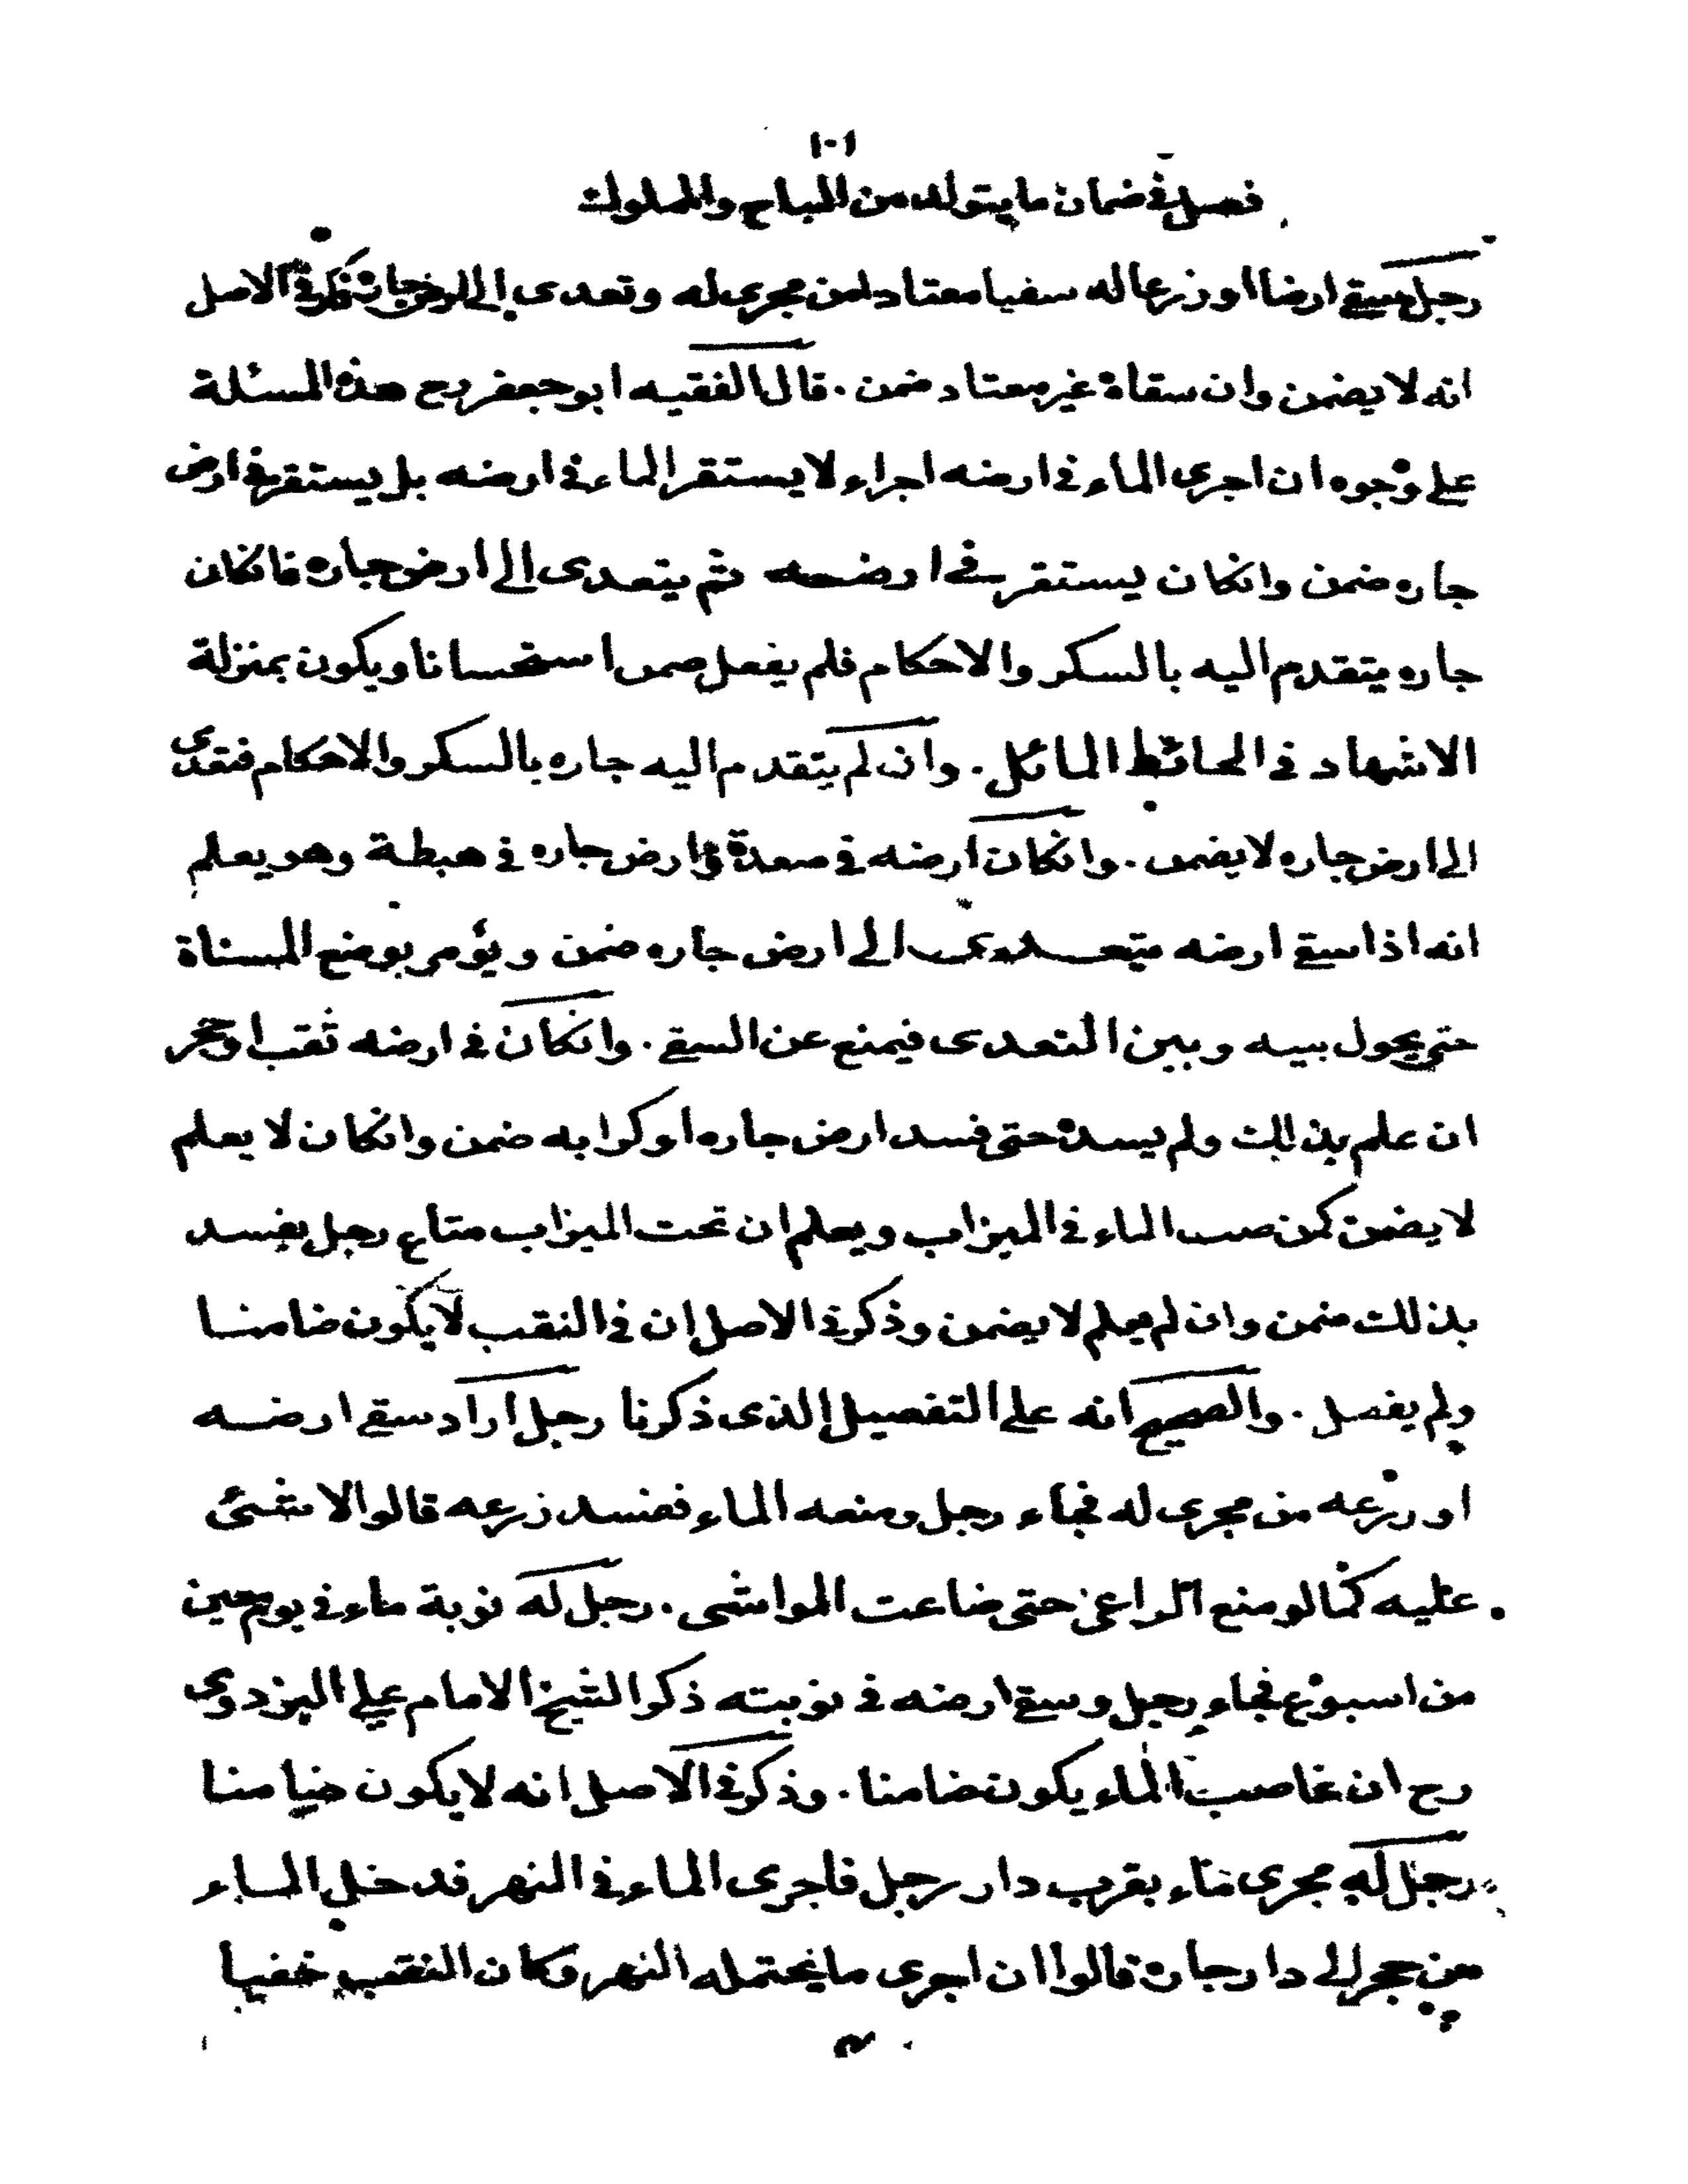 ١٠١
فصل في ضمان ما يتولد من المباح والمملوك
رجل سقى ارضا او زرعا له سقيا معتادا من مجرى له وتعدى الى ارض جاره ذكر في الاصل
انه لا يضمن وان سقاه غير معتاد ضمن . قال الفقيه ابو جعفر رح هذه المسئلة
على وجوه ان اجرى الماء في ارضه اجراء لا يستقر الماء في ارضه بل يستقر في ارض
جاره ضمن وانكان يستقر في ارضه ثم يتعدى الى ارض جاره فانكان
جاره يتقدم اليه بالسكر والاحكام فلم يفعل ضمن استحسانا ويكون بمنزلة
الاشهاد في الحائط المائل . وان لم يتقدم اليه جاره بالسكر والاحكام فتعدى
الى ارض جاره لا يضمن . وانكان ارضه في صعدة وارض جاره في هبطة وهو يعلم
انه اذا سقى ارضه يتعدى الى ارض جاره ضمن ويؤمر بوضع المسناة
حتى يحول بينه وبين التعدى فيمنع عن السقي . وانكان في ارضه ثقب او جحر
ان علم بذلك ولم يسده حتى فسد ارض جاره او كرابه ضمن وانكان لا يعلم
لا يضمن كمن صب الماء في الميزاب ويعلم ان تحت الميزاب متاع رجل يفسد
بذلك ضمن وان لم يعلم لا يضمن وذكر في الاصل ان في النقب لا يكون ضامنا
ولم يفصل . والصحيح انه على التفصيل الذى ذكرنا رجل اراد سقي ارضه
او زرعه من مجرى له فجاء رجل ومنعه الماء ففسد زرعه قالوا لا شئ
عليه كما لو منع الراعي حتى ضاعت المواشى . رجل له نوبة ماء في يوم معين
من اسبوع فجاء رجل وسقى ارضه في نوبته ذكر الشيخ الامام علي البزدوى
رح ان غاصب الماء يكون ضامنا . وذكر في الاصل انه لا يكون ضامنا
رجل له مجرى ماء بقرب دار رجل فاجرى الماء في النهر فدخل الماء
من جحر الى دار جاره قالوا ان اجرى ما يحتمله النهر وكان النقب خفيا